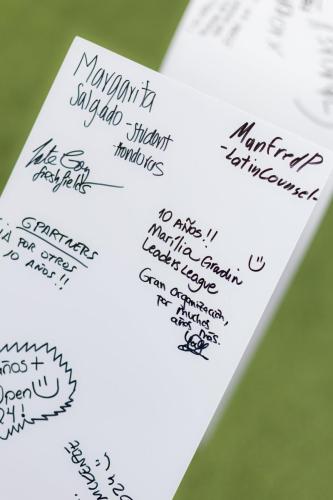 Margarita
Salgado - Student
Honduras
ManfredP
-LatinCounsel-
freshfields
GPARTNERS
¡A POR OTROS
10 AÑOS!!
10 AÑOS!!
Marilia Grandin
Leaders League
Gran organización,
por muchos
años más.
años +
Open
24!